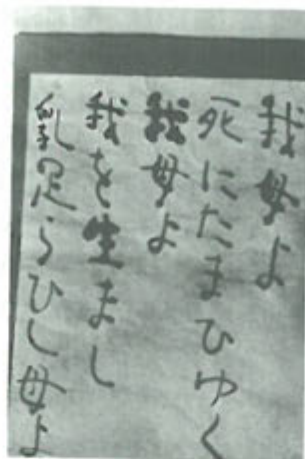 我母よ
死にたまひゆく
我母よ
我を生まし
乳足らひし母よ